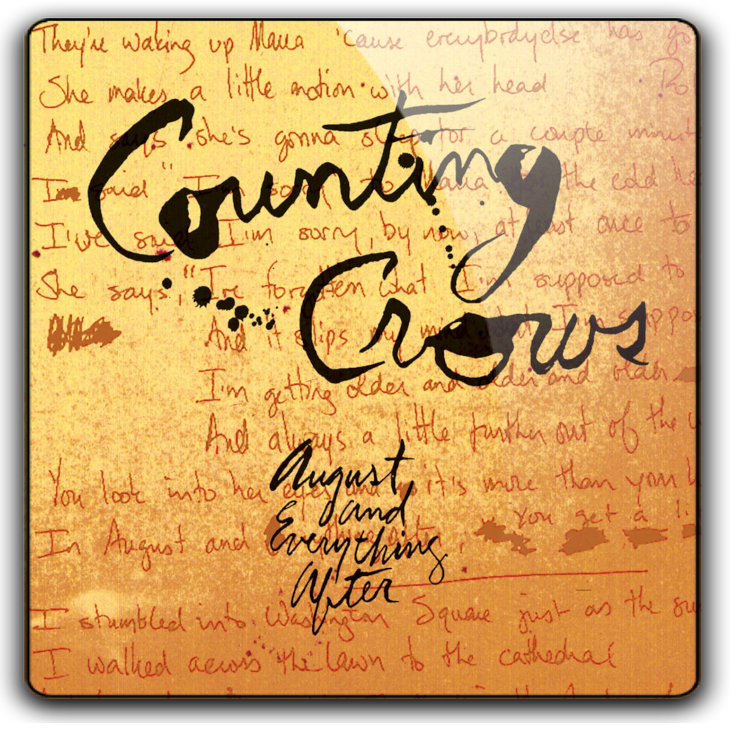 They're waking up Maria 'cause everybodyelse has go
She makes a little motion with her head
And says she's gonna sleep for a couple minut
I'm said "I'm sorry to Maria the cold he
I've said I'm sorry, by now, at just once to
She says, "I've forgotten what I'm supposed to
And it slips my mind what I'm suppo
I'm getting older and older and older
And always a little further out of the
You look into her eyes and it's more than your
You get a
In August and Everything after
I stumbled into Washington Square just as the su
I walked across the lawn to the cathedral
Counting
Crows
August
and
Everything
After